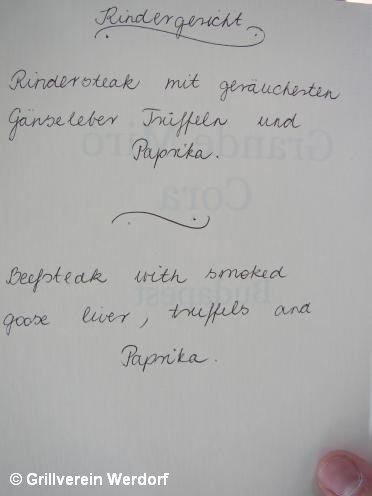 Rindergericht
Rindersteak mit geräucherten
Gänseleber Trüffeln und
Paprika.
Grande Miro
Cora
Budapest
Beefsteak with smoked
goose liver, truffels and
Paprika.
© Grillverein Werdorf